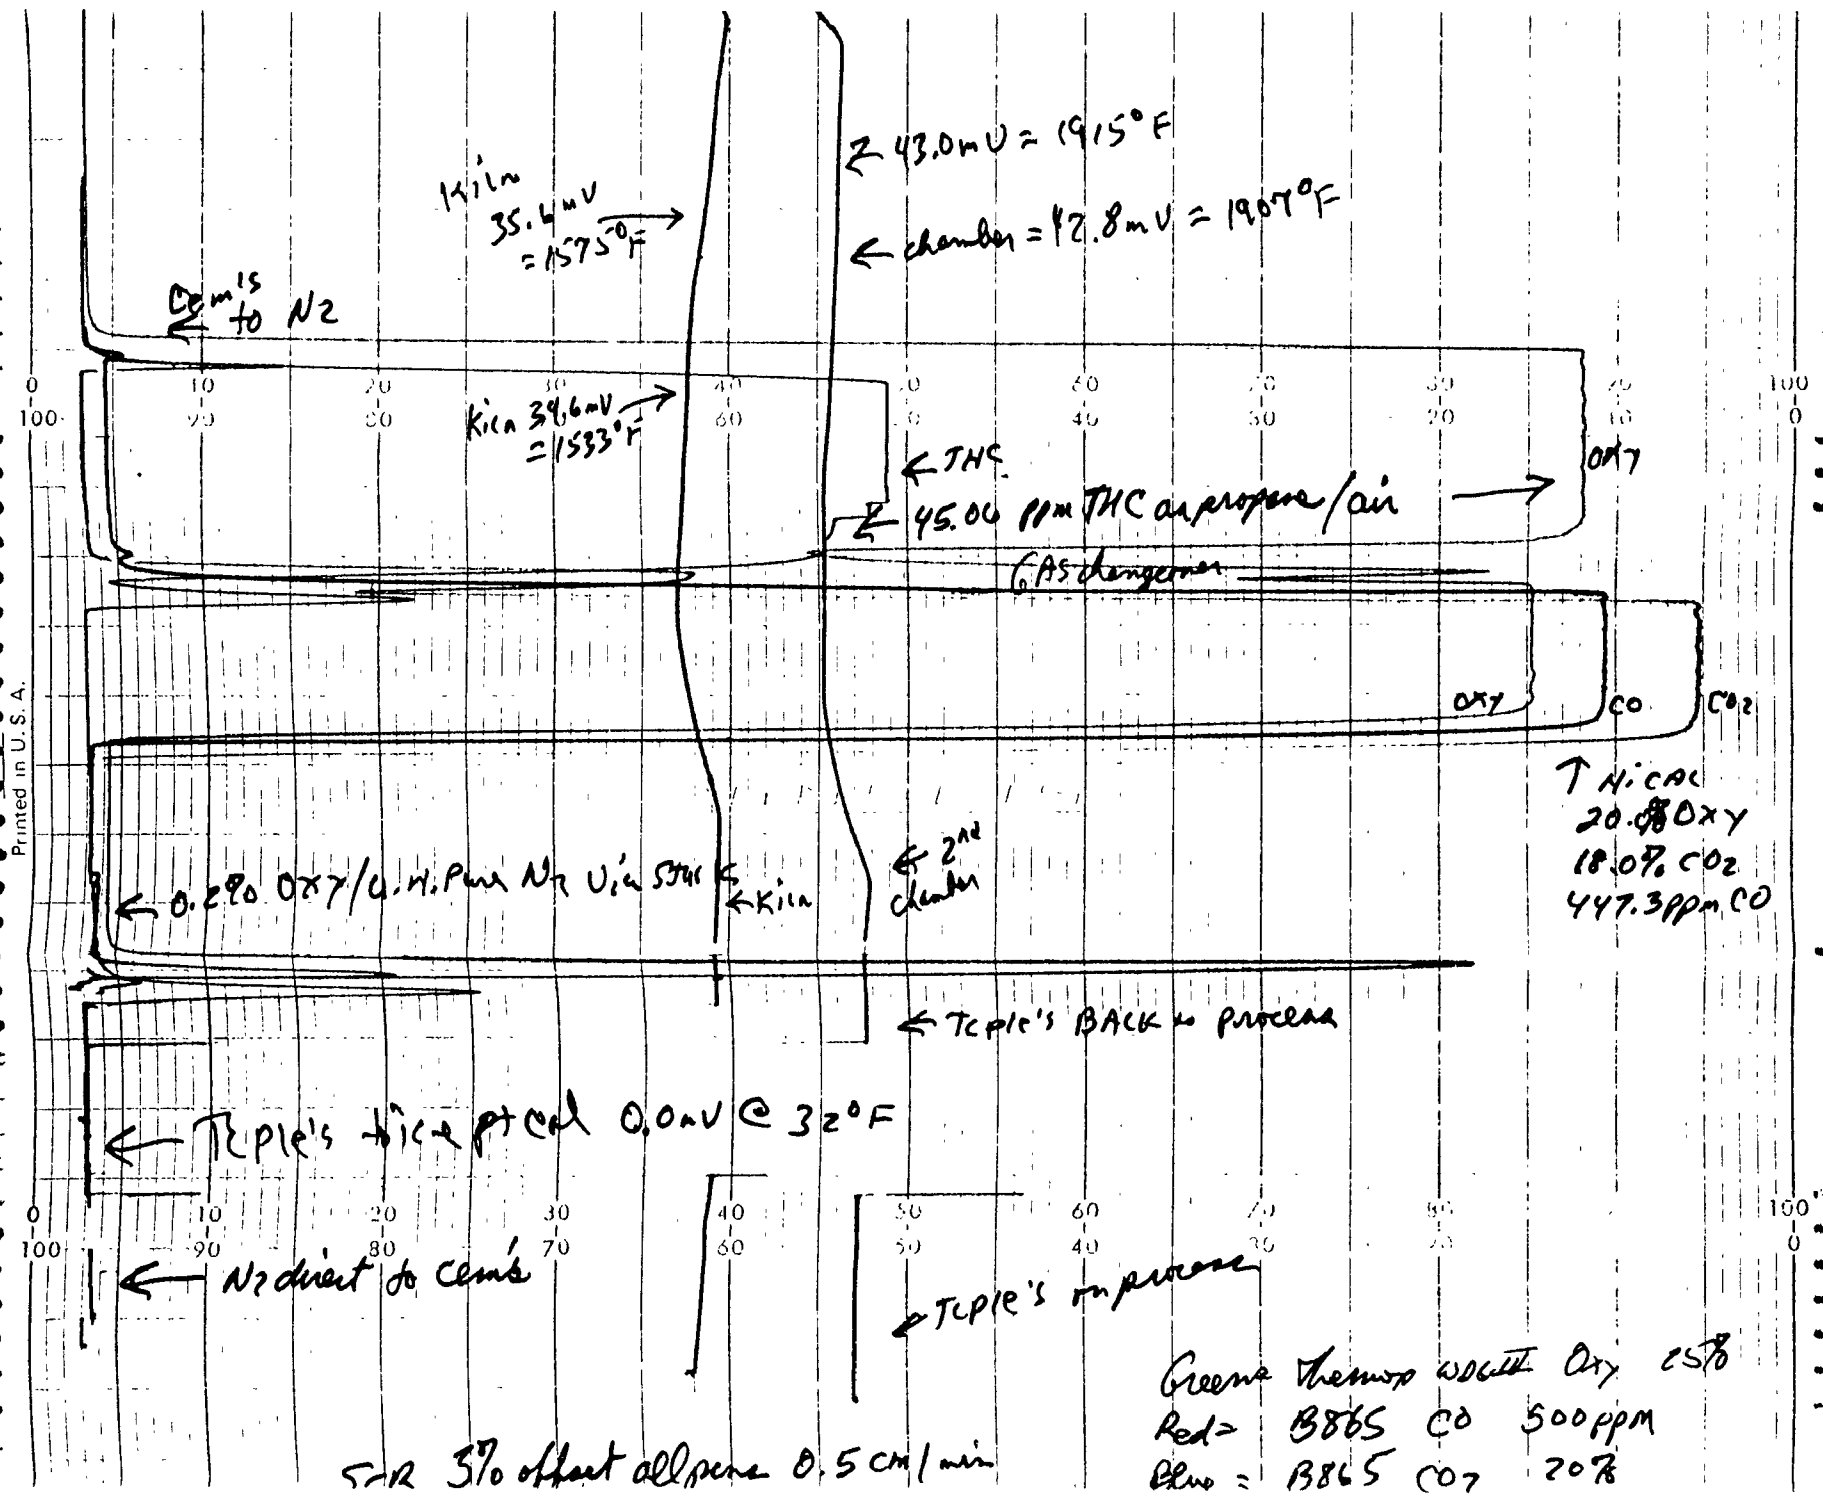 ← 43.0mV = 1915°F
Kiln
35.6mV →
= 1575°F
← chamber = 42.8mV = 1907°F
Cem's
← to N2
0 10 20 30 40 50 60 70 80 90 100
100 90 80 70 60 50 40 30 20 10 0
Kiln 34.6mV →
= 1533°F
← THC
OXY
← 45.00 ppm THC as propane/air →
GAS changeover
OXY CO CO2
Printed in U.S.A.
↑ Hi CAL
20.0% Oxy
18.0% CO2
447.3ppm CO
← 2nd
chamber
← 0.2% OXY/U.H. Pure N2 Via Stack
← Kiln
← Tcple's BACK to process
← Tcple's to ice pt cal 0.0mV @ 32°F
0 10 20 30 40 50 60 70 80 100
100 90 80 70 60 50 40 30 20 0
← N2 direct to Cem's
← Tcple's on process
Green = Thermox WDGIII Oxy 25%
Red = B865 CO 500ppm
Blue = B865 CO2 20%
5% offset all pens 0.5 cm/min